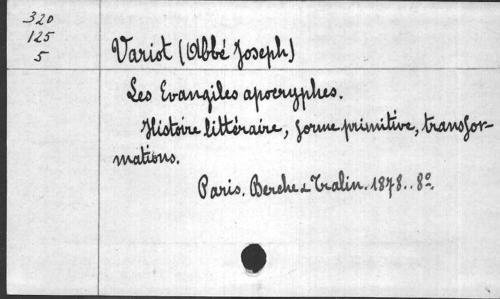 320
125
5
Variot (Abbé Joseph)
Les Evangiles apocryphes.
Histoire littéraire, forme primitive, transfor-
mations.
Paris. Berche & Tralin. 1878.. 8º.